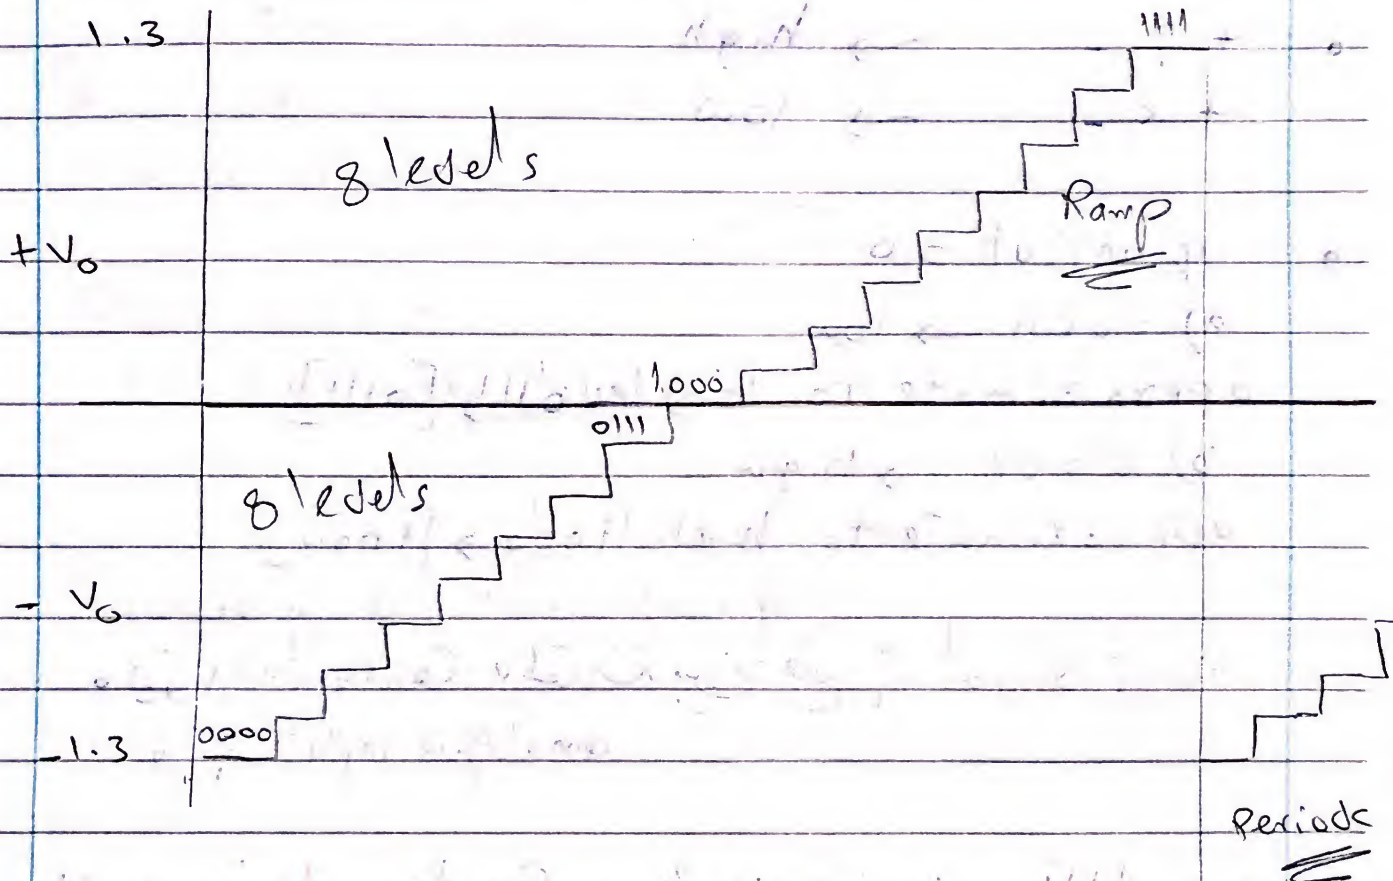 1111
1.3
8 levels
Ramp
+ V₀
1000
0111
8 levels
- V₀
0000
-1.3
Periodc